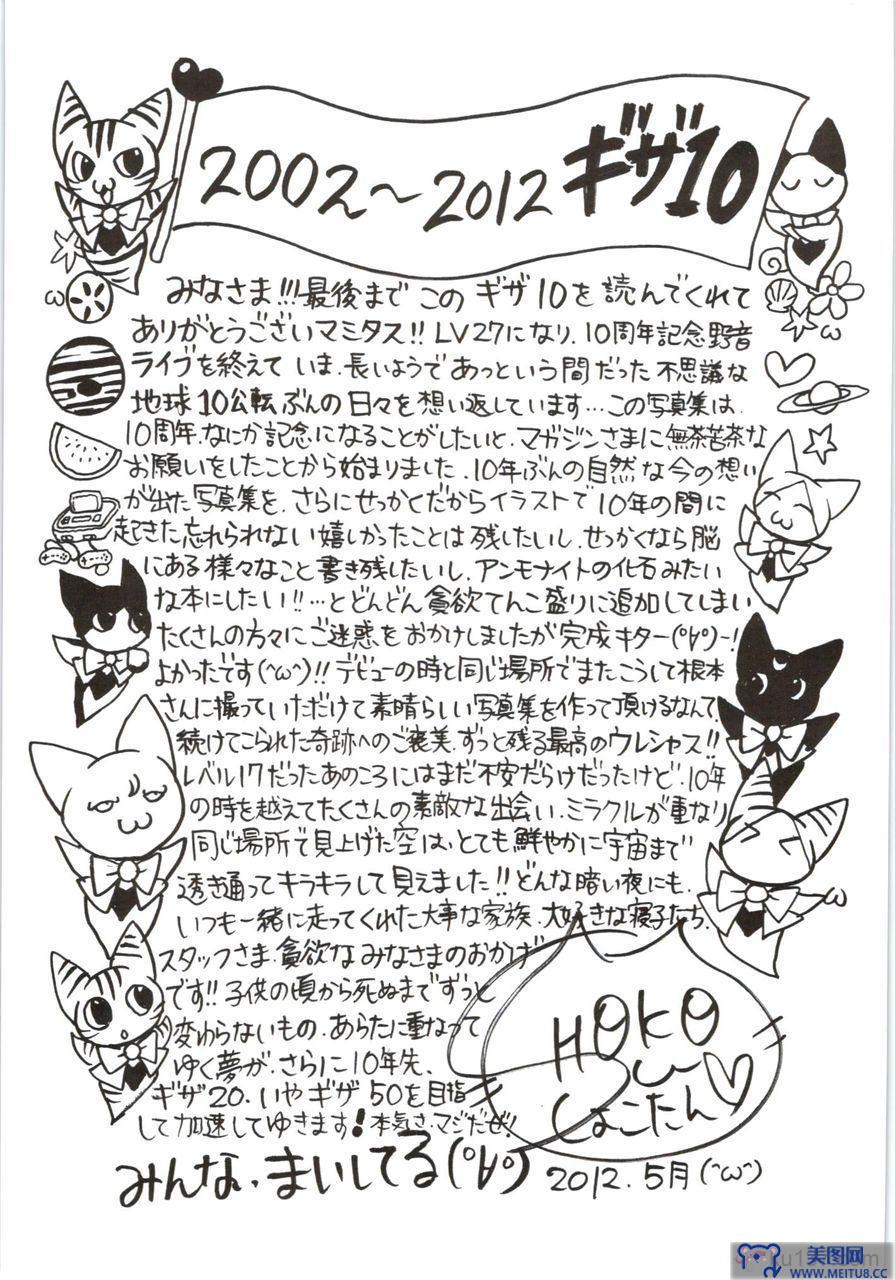 2002～2012 ギザ10
みなさま!!!最後まで このギザ10を読んでくれて
ありがとうございマミタス!! LV27になり、10周年記念野音
ライブを終えて いま、長いようであっという間だった不思議な
地球10公転ぶんの日々を想い返しています…この写真集は、
10周年、なにか記念になることがしたいと、マガジンさまに無茶苦茶な
お願いをしたことから始まりました、10年ぶんの自然な今の想い
が出た写真集を、さらにせっかくだからイラストで10年の間に
起きた忘れられない嬉しかったことは残したいし、せっかくなら脳
にある様々なこと書き残したいし、アンモナイトの化石みたい
な本にしたい!!…とどんどん貪欲てんこ盛りに追加してしまい
たくさんの方々にご迷惑をおかけしましたが完成キター(°∀°)-!
よかったです(^ω^)!! デビューの時と同じ場所でまたこうして根本
さんに撮っていただけて素晴らしい写真集を作って頂けるなんて、
続けてこられた奇跡へのご褒美、ずっと残る最高のウレシャス!!
レベル17だったあのころにはまだ不安だらけだったけど、10年
の時を越えてたくさんの素敵な出会い、ミラクルが重なり
同じ場所で見上げた空は、とても鮮やかに宇宙まで
透き通ってキラキラして見えました!! どんな暗い夜にも、
いつも一緒に走ってくれた大事な家族、大好きな寝子たち、
スタッフさま、貪欲なみなさまのおかげ
です!! 子供の頃から死ぬまでずっと
変わらないもの、あらたに重なって
ゆく夢が、さらに10年先、
ギザ20、いやギザ50を目指
して加速してゆきます!本気さ、マジだぜ!
みんな、まいしてる(°∀°)
HOKO
しょこたん♡
2012.5月(^ω^)
美图网
WWW.MEITU8.CC